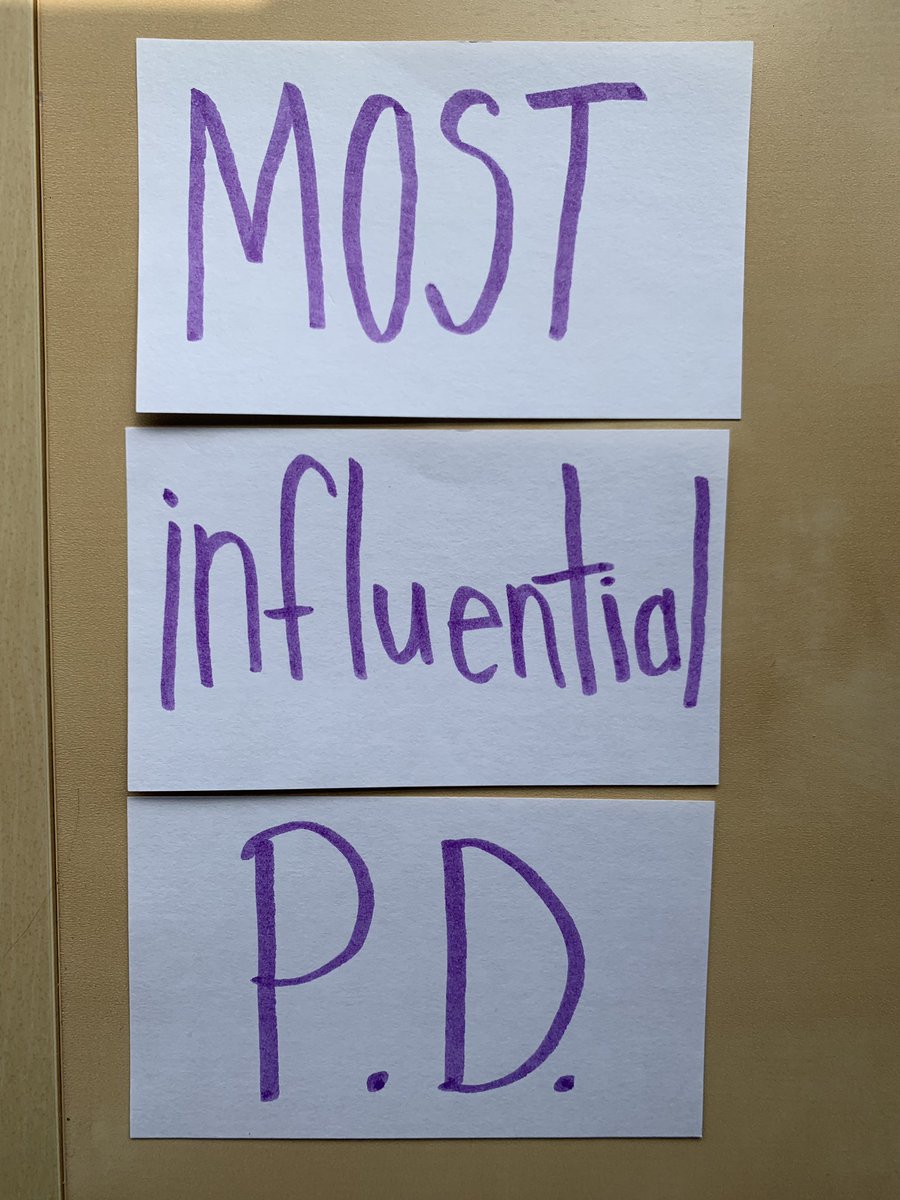 MOST
influential
P.D.